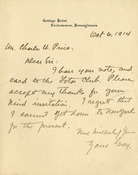 Cottage Point
Pennsylvania
Oct 6, 1914
Mr. Charles W. Price:
Dear Sir:
I have your note, and
card to the Lotos Club. Please
accept my thanks for your
kind invitation. I regret that
I cannot get down to New York
for the present.
Very sincerely yours
Zane Grey